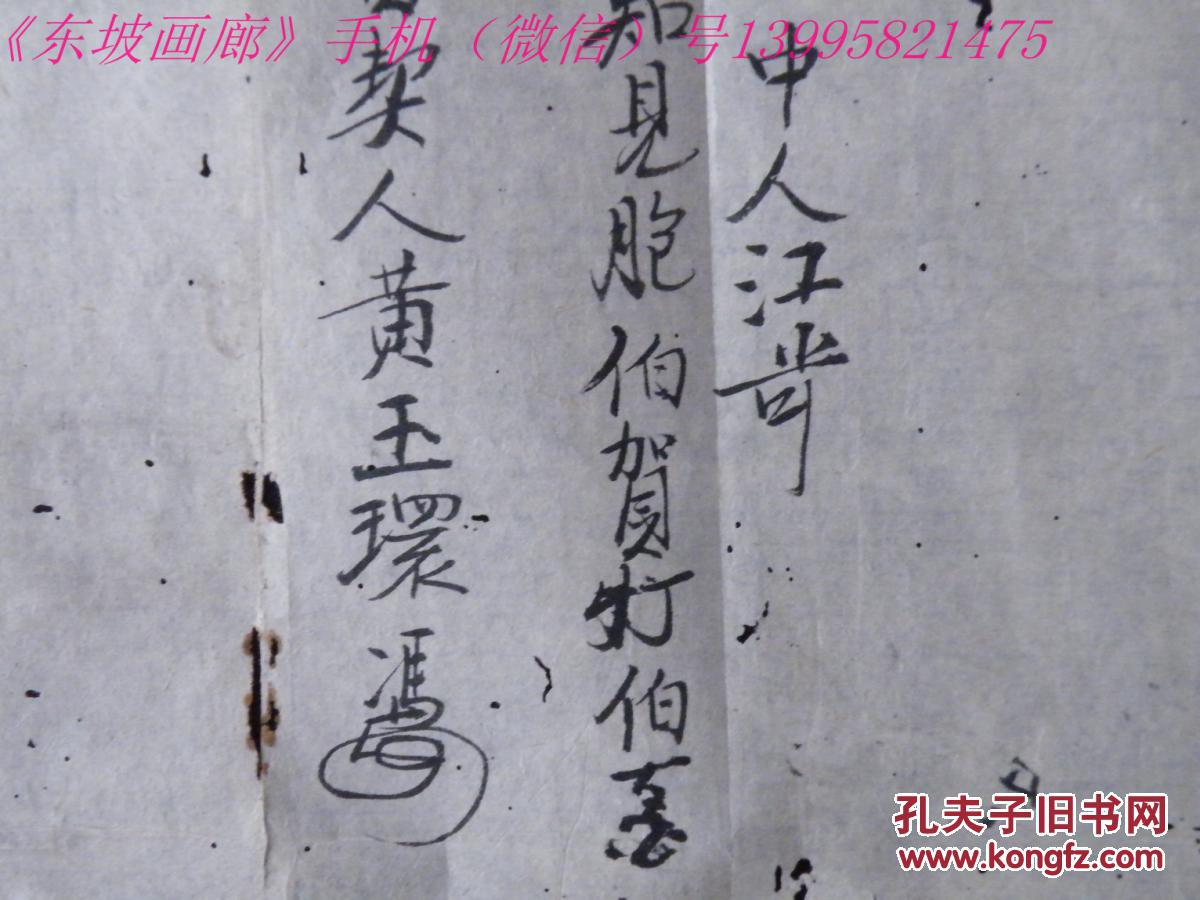 《东坡画廊》手机（微信）号13995821475
中人江
知見胞伯賀灯伯
契人黄玉環
孔夫子旧书网
www.kongfz.com